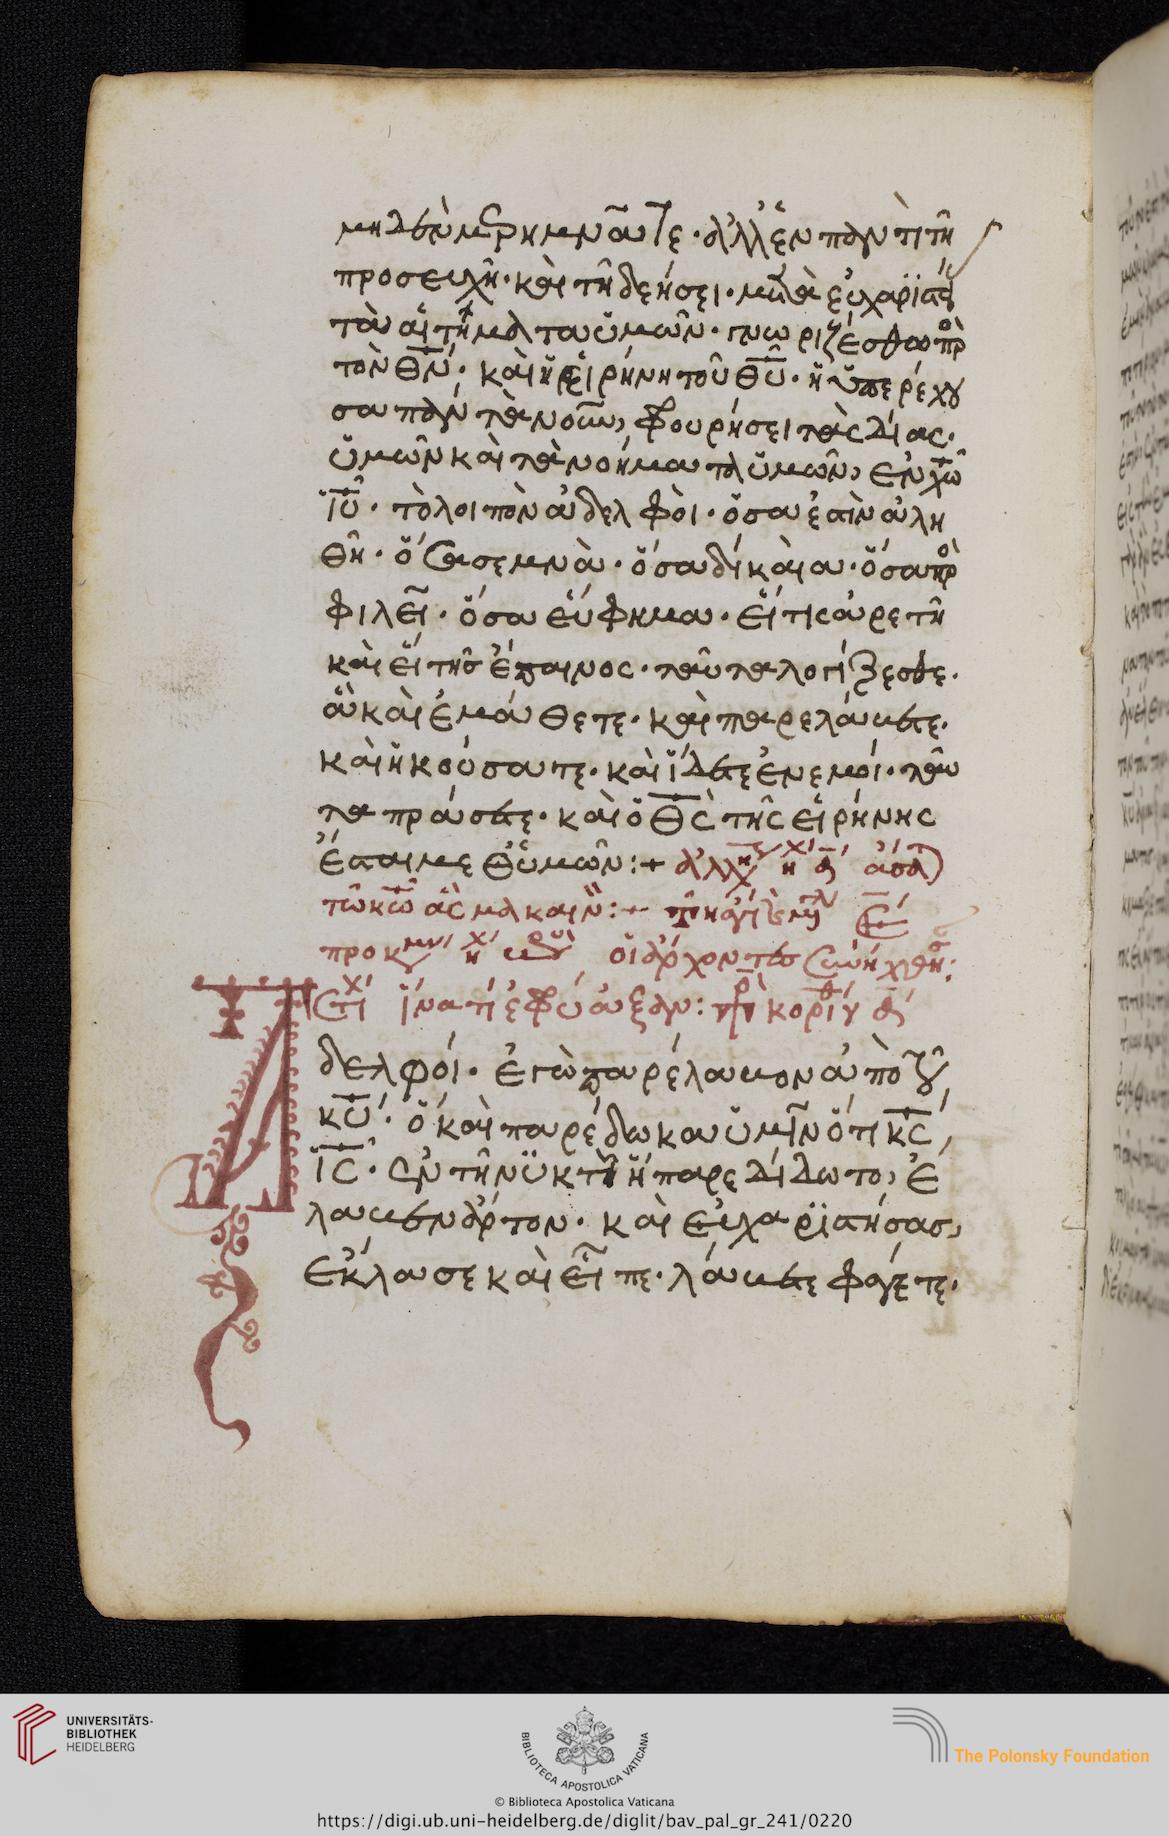 μηδὲν μεριμνᾶτε· ἀλλ' ἐν παντὶ τῆ
προσευχῆ· καὶ τῆ δεήσει· μετὰ εὐχαριστί
τὰ αἰτήματα ὑμῶν· γνωριζέσθω πρὸ
τὸν θν· καὶ ἡ εἰρήνη τοῦ θυ· ἡ ὑπερέχου
σα πάντα νοῦν, φρουρήσει τὰς καρδίας·
ὑμῶν καὶ τὰ νοήματα ὑμῶν, ἐν χω
ιυ· τὸ λοιπὸν ἀδελφοὶ· ὅσα ἐστὶν ἀλη
θῆ· ὅσα σεμνὰ· ὅσα δίκαια· ὅσα προ
φιλεῖ· ὅσα εὔφημα· εἴ τις ἀρετὴ
καὶ εἴ της ἔπαινος· ταῦτα λογίζεσθε·
ἃ καὶ ἐμάθετε· καὶ παρελάβετε·
καὶ ἠκούσατε· καὶ ἴδετε ἐν ἐμοί· ταῦ
τα πράσετε· καὶ ὁ θς τῆς εἰρήνης
ἔσται μεθ' ὑμῶν:+ ἀλλη ἠχ δ ἄσα
τῶ κω ἆσμα καιν:+ τῆ ἁγί μγ ε
προκ ηχ οἱ ἄρχοντες συνήχθη:
στί ἵνα τί ἐφρύαξαν: πρ κοριν ἀ
δελφοί· ἐγὼ παρέλαβον ἀπὸ τοῦ
κυ· ὃ καὶ παρέδωκα ὑμῖν ὅτι κς
ις· ἐν τῆ νϋκτὶ ἧ παρεδίδωτο, ἔ
λαβεν ἄρτον· καὶ εὐχαριστήσας,
ἔκλασε καὶ εἶπε· λάβετε φάγετε·
UNIVERSITÄTS-
BIBLIOTHEK
HEIDELBERG
BIBLIOTECA APOSTOLICA VATICANA
The Polonsky Foundation
© Biblioteca Apostolica Vaticana
https://digi.ub.uni-heidelberg.de/diglit/bav_pal_gr_241/0220